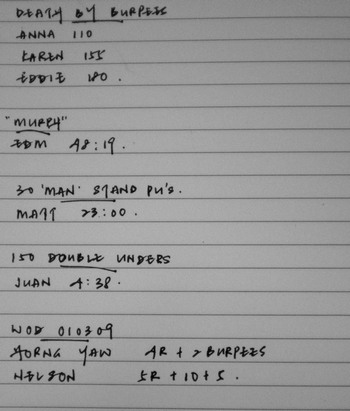 DEATH BY BURPEES
ANNA 110
KAREN 155
EDDIE 180.
"MURPH"
EDM 48:19.
30 'MAN' STAND PU'S.
MATT 23:00.
150 DOUBLE UNDERS
JUAN 4:38.
WOD 010309
AORNG YAW 4R + 2 BURPEES
NELSON 5R + 10 + 5.